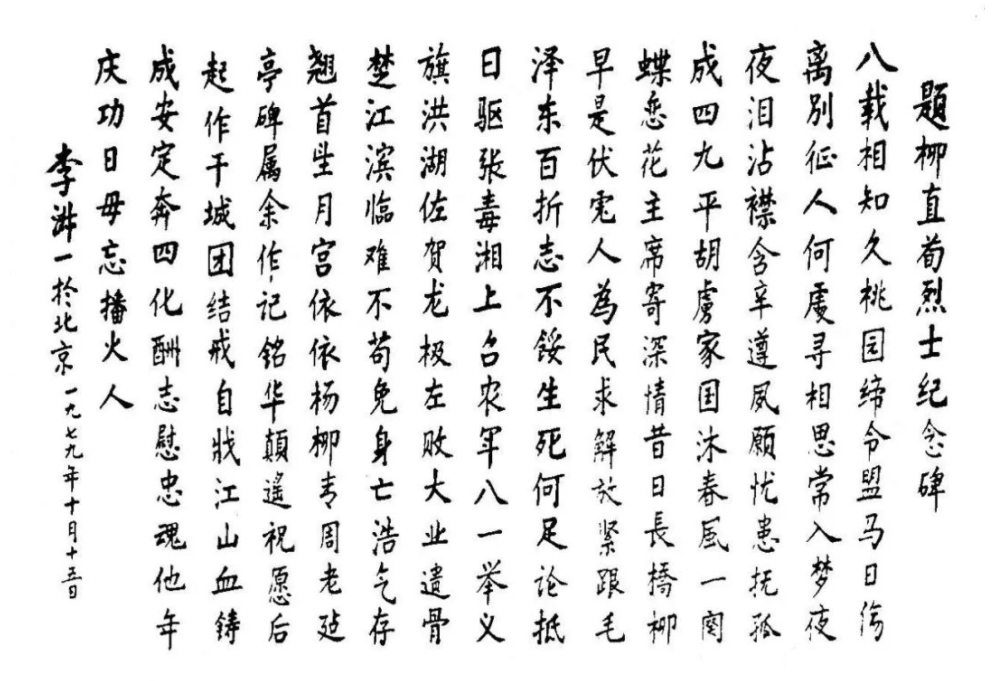 题柳直荀烈士纪念碑
八载相知久桃园缔令盟马日伤
离别征人何处寻相思常入梦夜
夜泪沾襟含辛遵夙愿忧患抚孤
成四九平胡虏家国沐春风一阕
蝶恋花主席寄深情昔日長橋柳
早是伏虎人為民求解放紧跟毛
泽东百折志不馁生死何足论抵
日驱张毒湘上召农军八一举义
旗洪湖佐贺龙极左败大业遗骨
楚江滨临难不苟免身亡浩气存
翘首望月宫依依杨柳青周老延
亭碑属余作记铭华颠遥祝愿后
起作干城团结戒自戕江山血铸
成安定奔四化酬志慰忠魂他年
庆功日毋忘播火人
李淑一於北京一九七九年十月十五日